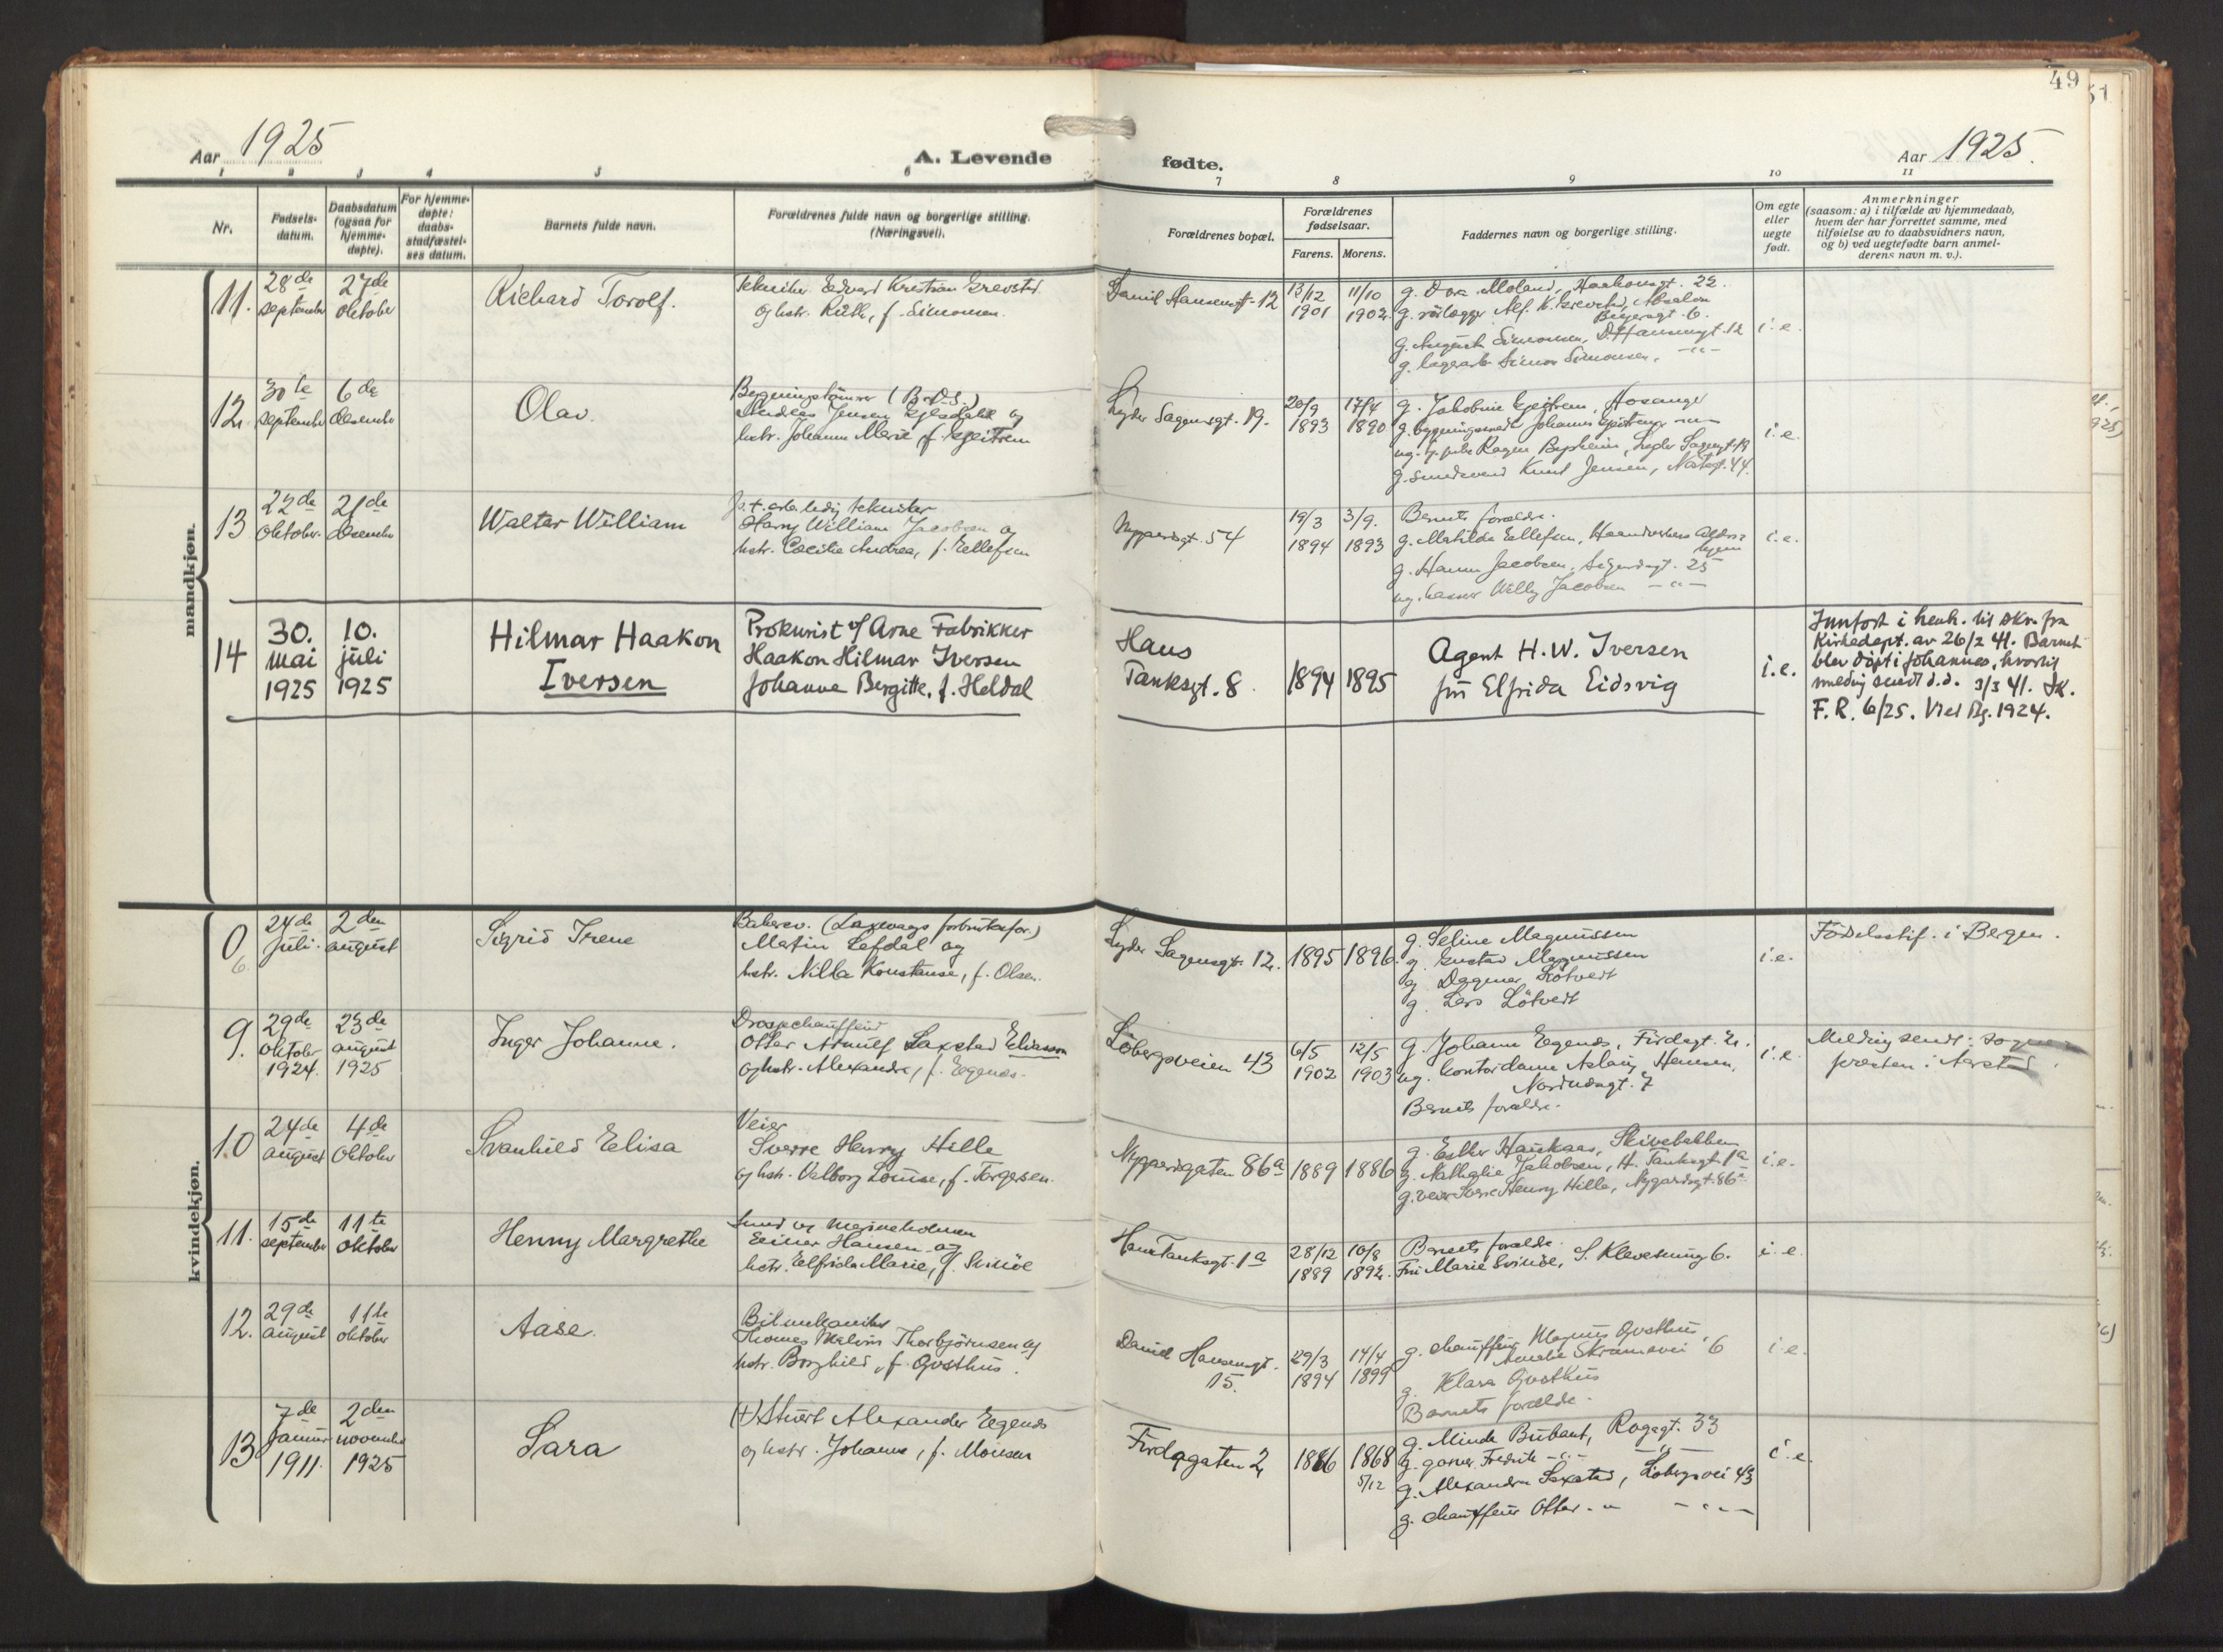 49
Aar 1925
A. Levende
fødte.
Aar 1925.
1 2 3 4 5 6 7 8 9 10 11
Nr.
Fødsels-
datum.
Daabsdatum
(ogsaa for
hjemme-
døpte).
For hjemme-
døpte:
daabs-
stadfæstel-
ses datum.
Barnets fulde navn.
Forældrenes fulde navn og borgerlige stilling.
(Næringsvei).
Forældrenes bopæl.
Forældrenes
fødselsaar.
Farens. Morens.
Faddernes navn og borgerlige stilling.
Om egte
eller
uegte
født.
Anmerkninger
(saasom: a) i tilfælde av hjemmedaab,
hvem der har forrettet samme, med
tilføielse av to daabsvidners navn,
og b) ved uegtefødte barn anmel-
derens navn m. v.).
mandkjøn.
11.
28de
september
27de
oktober
Richard Torolf.
Tekniker Edvard Kristian Grevstad
og hstr. Ruth, f. Simonsen.
Daniel Hansensgt. 12
13/12
1901
11/10
1902.
g. Dora Moland, Haakonsgt. 22.
g. rörlegger Alf. K. Grevstad, Absalon
Beyersgt. 6.
g. Augusta Simonsen, D. Hansensgt. 12
g. lagerarb. Simon Simonsen, -"-
i. e.
12.
30te
september
6de
desember
Olav.
(B.D.S.)
Andreas Jensen Gjesdahl og
hstr. Johanne Marie, f. Gjeitrem
Lyder Sagensgt. 19.
20/9
1893
17/4
1890
g. Jakobine Gjeitrem, Hosanger
Johannes Gjeitrem
Lyder Sagensgt. 19
g. Knut Jensen, 44.
i. e.
13
22de
oktober.
21de
desember
Walter William
tekniker
Harry William Jacobsen og
hstr. Cecilie Andrea, f. Ellefsen
Nygaardsgt. 54
19/3
1894
3/9.
1893
Barnets forældre.
g. Mathilde Ellefsen, Haandverkernes Alders-
hjem
g. Hanna Jacobsen, Sigurdsgt. 25
ug. Willy Jacobsen -"-
i. e.
14
30.
mai
1925
10.
juli
1925
Hilmar Haakon
Iversen
Prokurist v/ Arne Fabrikker
Haakon Hilmar Iversen
Johanne Bergitte, f. Heldal
Hans
Tanksgt. 8
1894
1895
Agent H. W. Iversen
fru Elfrida Eidsvig
i. e.
Innført i henh. til skr. fra
Kirkedept. av 26/2 41. Barnet
blev döpt i Johannes, hvortil
melding sendt d.d. 3/3 41. SK.
F. R. 6/25. Vred Pg. 1924.
kvindekjøn.
0
6.
24de
juli.
2den
august
Sigrid Irene
Bakersv. (Laxevaags forbruksfor.)
Martin Lefdal og
hstr. Nilla Konstanse, f. Olsen.
Lyder Sagensgt. 12.
1895
1896.
g. Seline Magnussen
g. Gustav Magnussen
g. Dagmar Lötvedt
g. Lars Lötvedt
i. e.
Födselsstif. i Bergen.
9.
29de
oktober
1924.
23de
august
1925
Inger Johanne.
Droschechauffeur
Otter Arnulf Laxstad Eliassen
og hstr. Alexandra, f. Egenæs.
Löbergsveien 43
6/5
1902
12/5
1903
g. Johanne Egenæs, Firdagt. 2.
ug. kontordame Aslaug Hansen,
Nordnæsgt. 7
Barnets forældre.
i. e.
Melding sendt: sogne-
presten i Aarstad.
10
24de
august
4de
oktober
Svanhild Elisa
Veier
Sverre Henry Hille
og hstr. Valborg Louise, f. Torgersen.
Nygaardsgaten 86a
1889
1886
g. Esther Haukaas, Skivebakken
g. Nathalie Jakobsen, H. Tanksgt. 1a
g. veier Sverre Henry Hille, Nygaardsgt. 86a
i. e.
11.
15de
september
11te
oktober
Henny Margrethe
Smed v/ Marineholmen
Einar Hansen og
hstr. Elfrida Marie, f. Svinöe
Hans Tanksgt. 1a
28/12
1889
10/8
1892.
Barnets forældre.
Fru Marie Svinöe, S. Klevesmug 6.
i. e.
12.
29de
august
11te
oktober
Aase.
Bilmekaniker
Thomas Melvin Thorbjörnsen og
hstr. Borghild, f. Gvsthus.
Daniel Hansensgt.
15.
29/3
1894
14/4
1899
g. chauffeur Magnus Gvsthus,
Amalie Skramsvei 6
g. Klara Gvsthus
Barnets forældre.
i. e.
13
7de
januar
1911.
2den
november
1925
Sara
(+) Stuert Alexander Egenæs
og hstr. Johanne, f. Monsen
Firdagaten 2
1866
1868
5/12
g. Minda Bubant, Rogagt. 33
g. Fredrik -"- -"-
g. Alexandra Laxstad, Löbergsvei 43
g. chauffeur Otter -"- -"-
i. e.